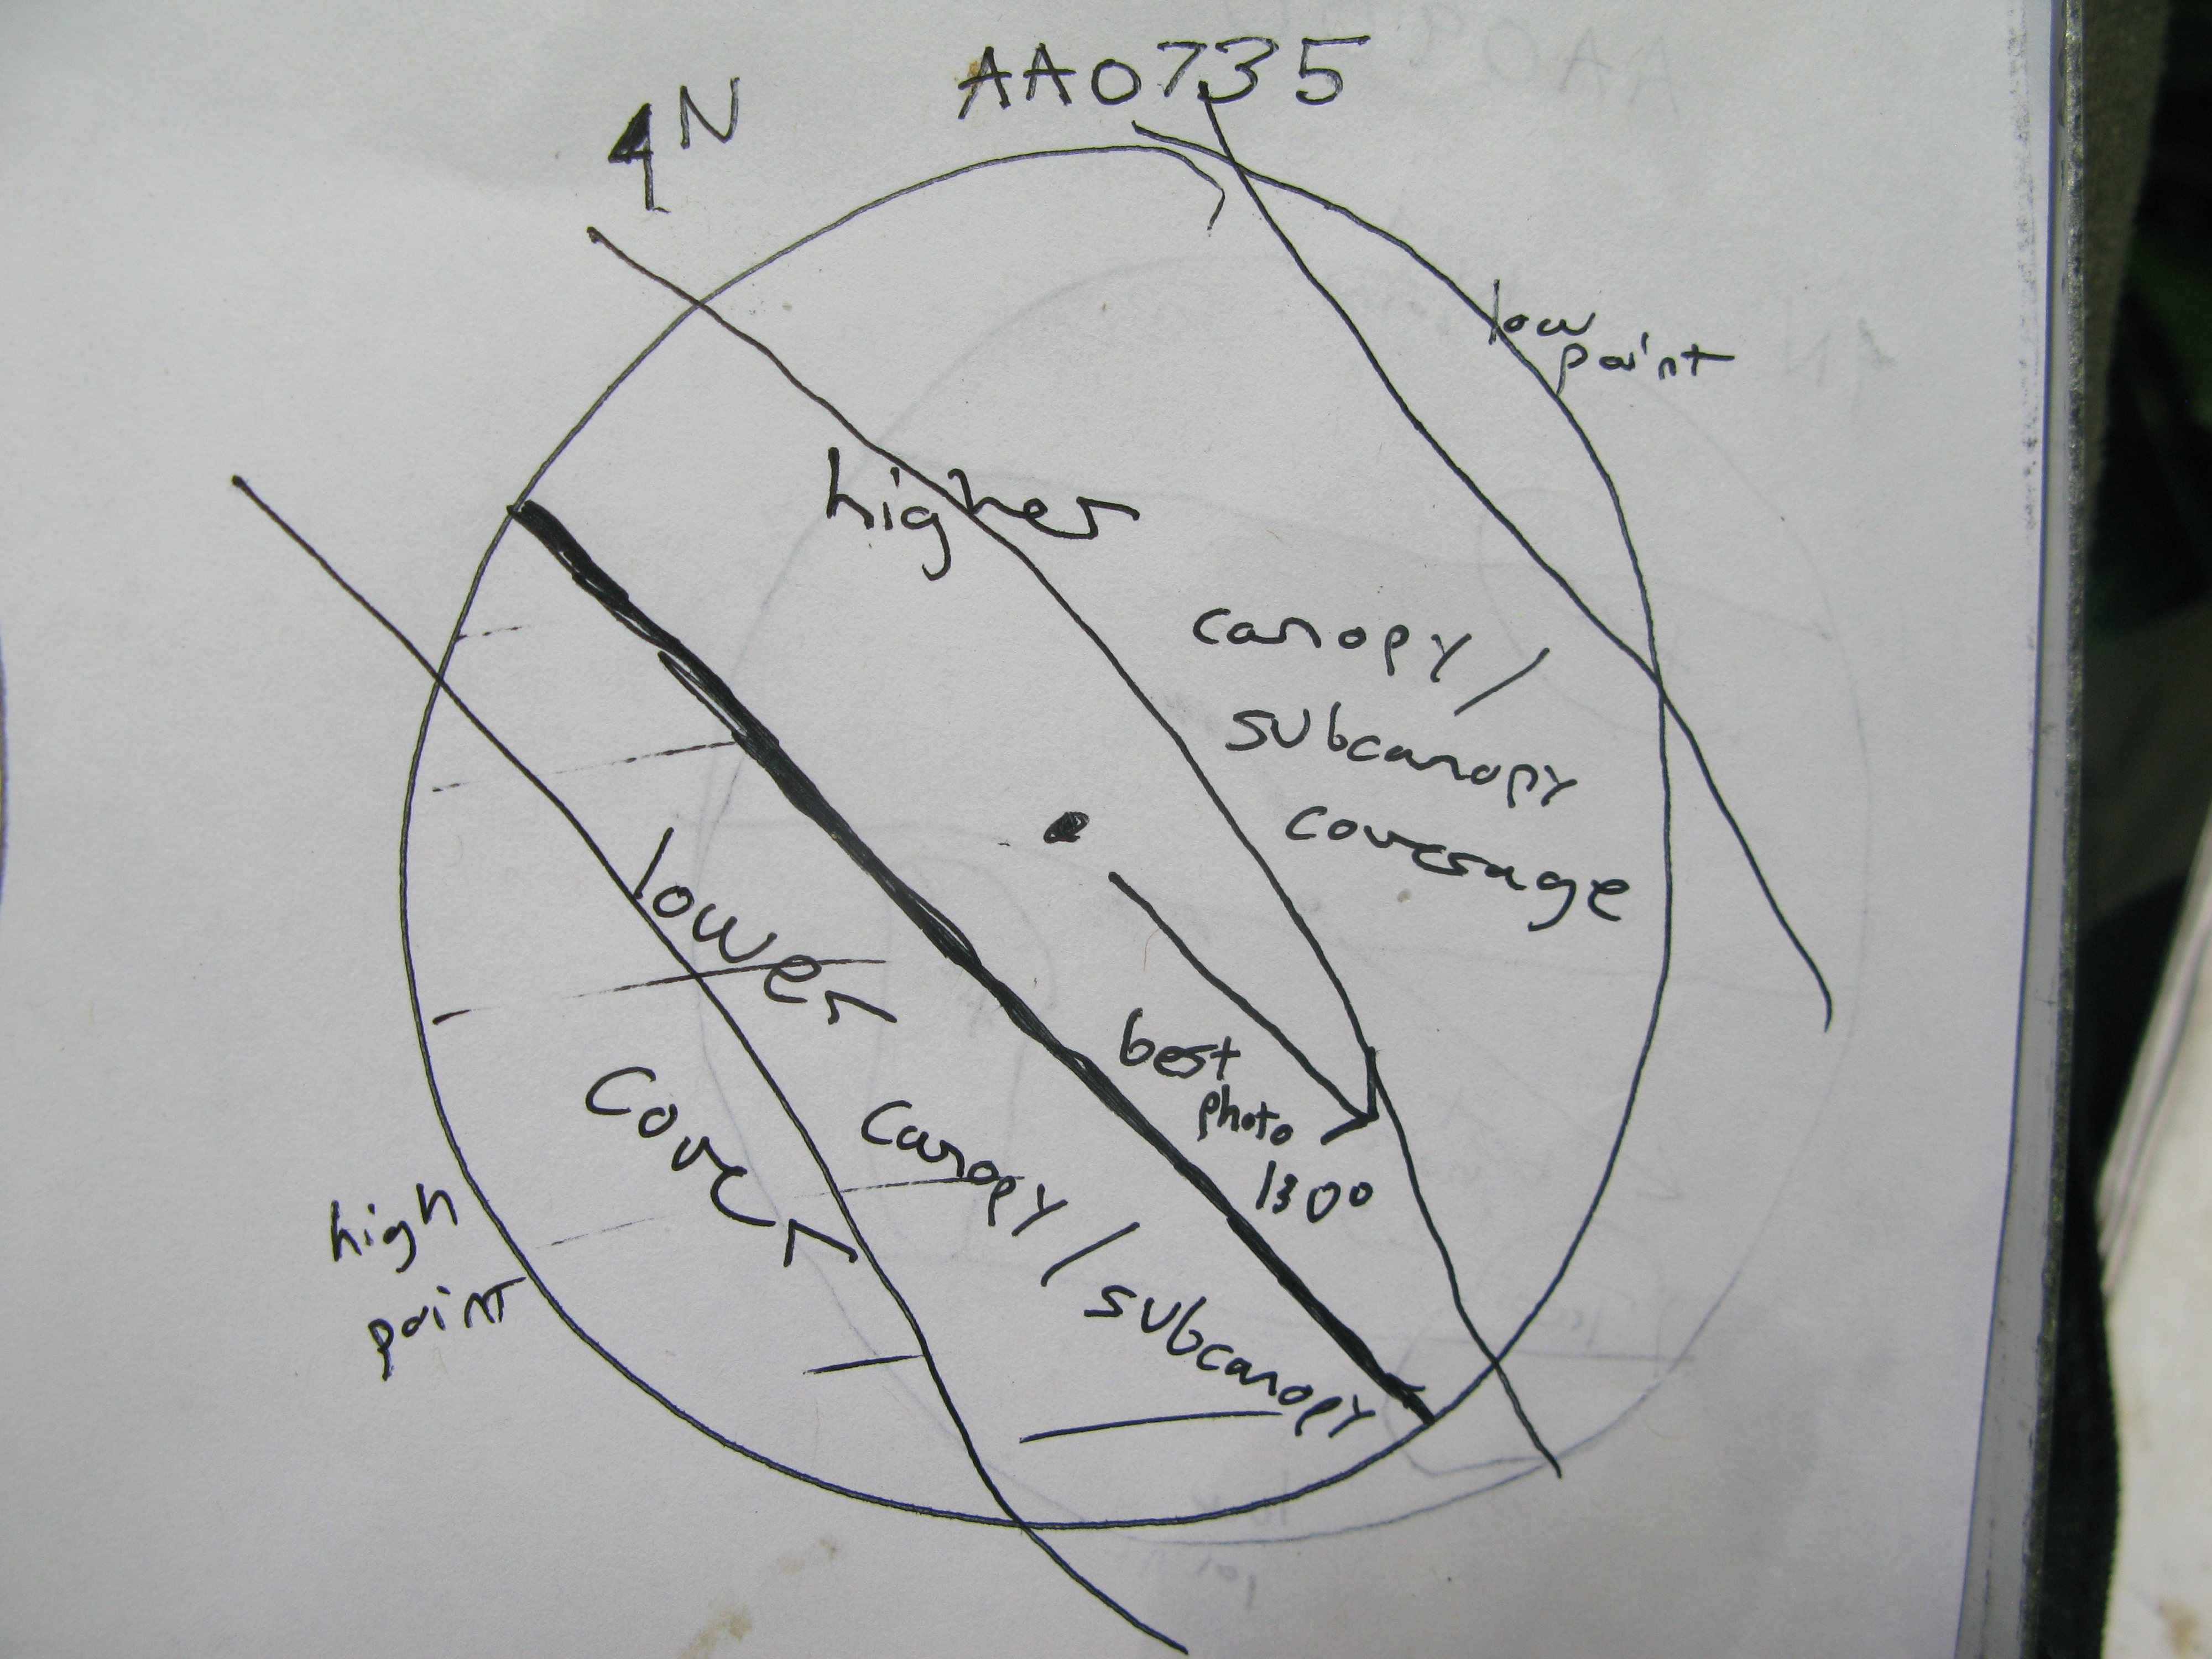 AA0735
N
low
point
higher
canopy /
subcanopy
coverage
lower
cover
canopy / subcanopy
best
photo
1300
high
point